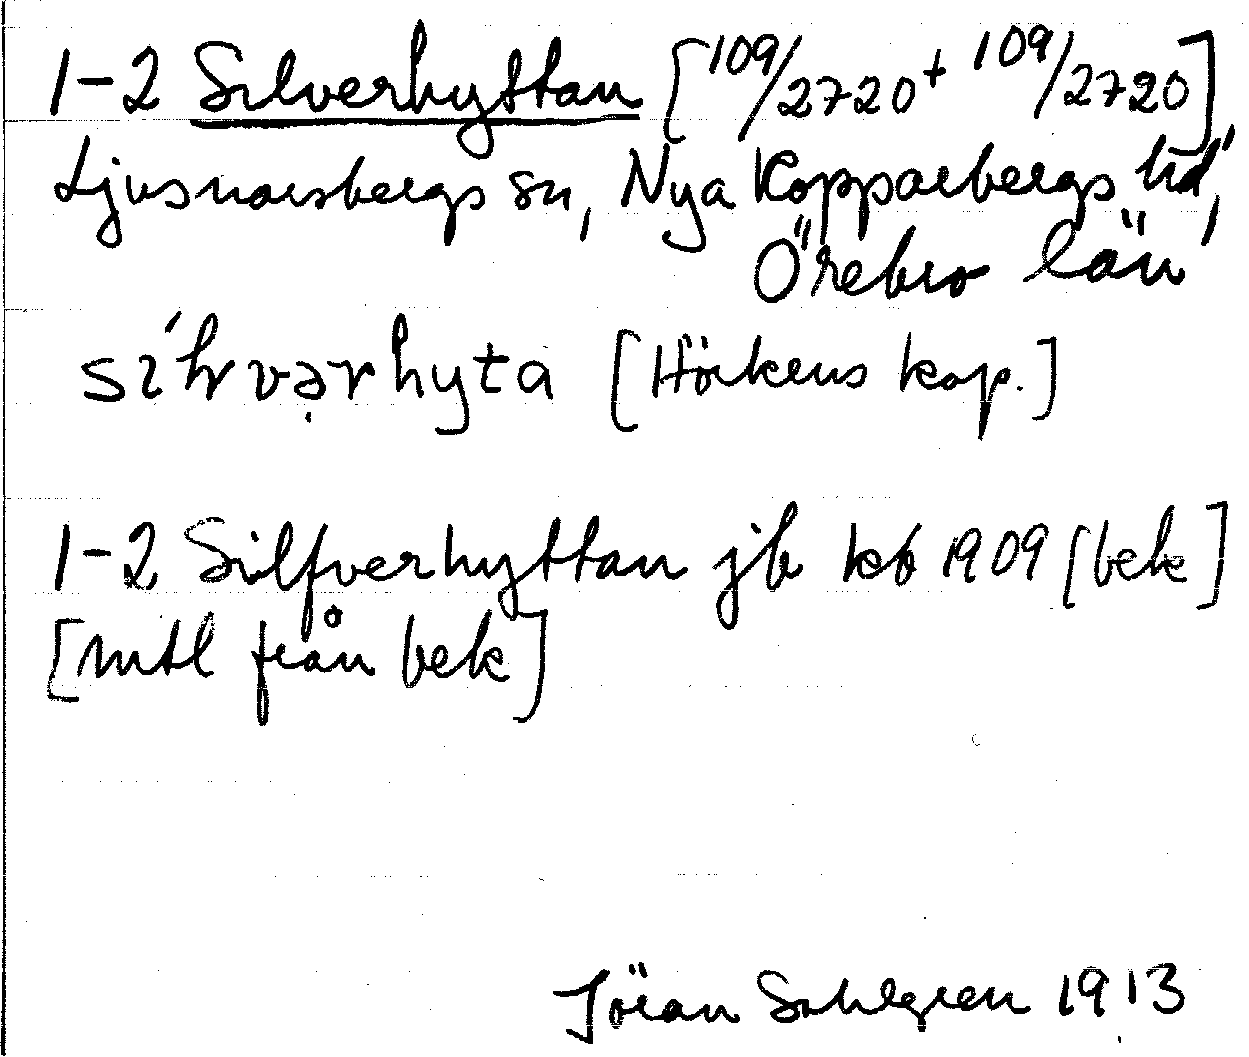 1-2 Silverhyttan [109/2720 + 109/2720]
Ljusnarsbergs sn, Nya Kopparbergs hd,
Örebro län
sílvərhyta [Hörkens kap.]
1-2 Silfverhyttan jb kb 1909 [bek]
[mtl från bek]
Jöran Sahlgren 1913